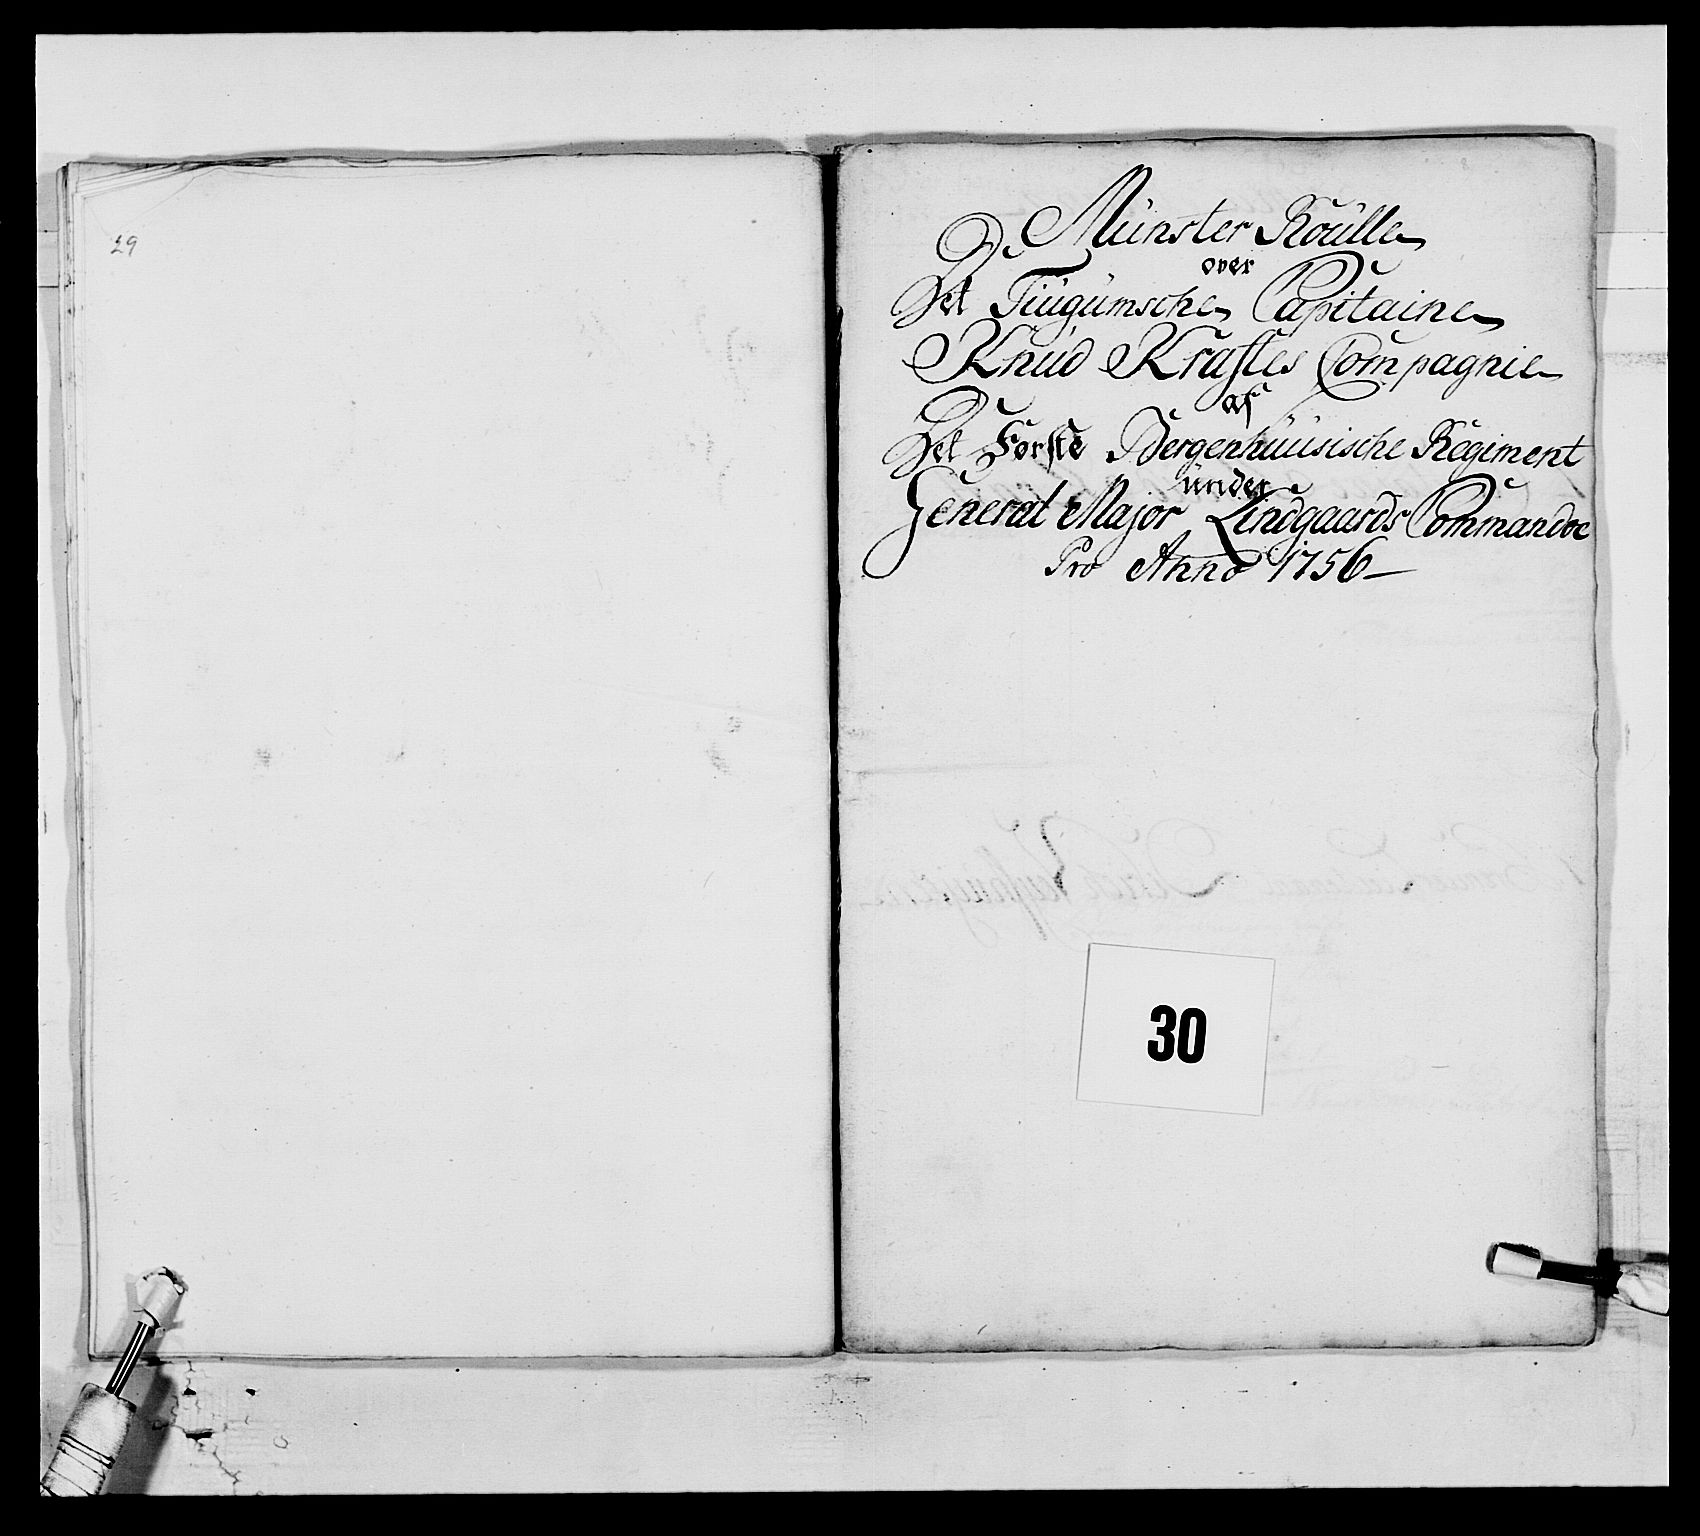 29
Münster Roülle
over
Det Tiügümsche Capitaine
Knüd Kraftes Compagnie
af
Det Første Bergenhüüsische Regiment
ünder
General Major Lindgaards Commandoe
Pro Anno 1756
30